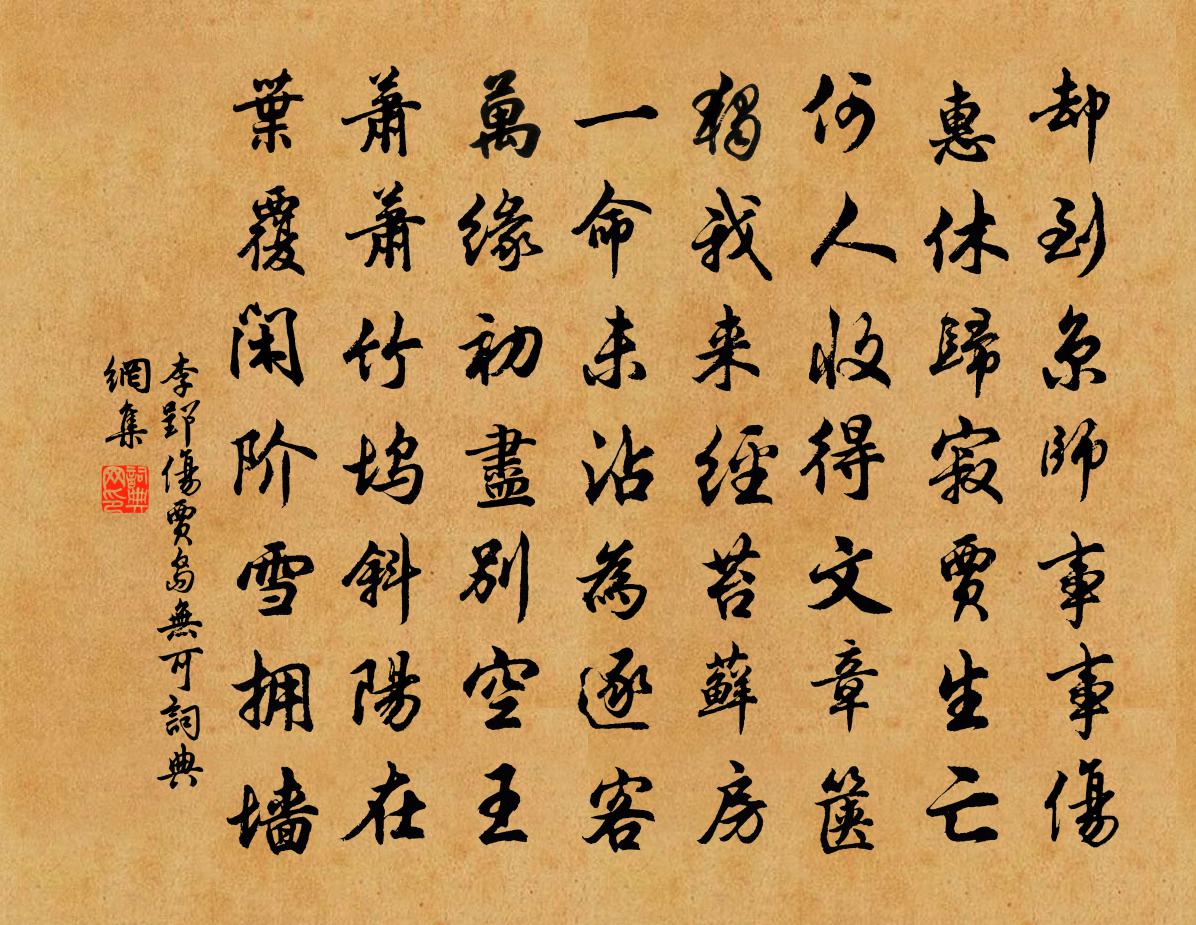 却到京師事事傷
惠休歸寂賈生亡
何人收得文章篋
獨我来經苔蘚房
一命未沾為逐客
萬緣初盡別空王
蕭蕭竹塢斜陽在
葉覆閑阶雪拥墙
李郢傷賈島無可詞典
網集
詞典网印